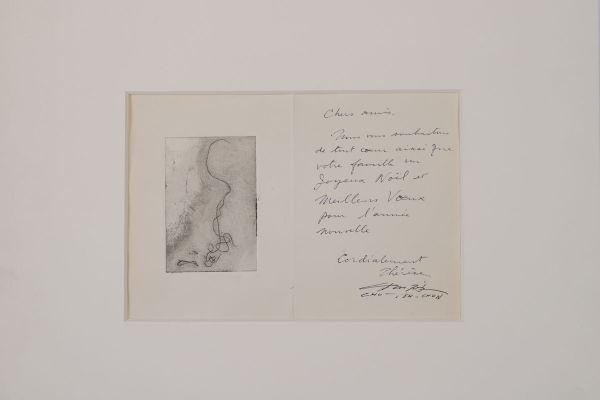 Chers amis.
Nous vous souhaitons
de tout coeur ainsi que
votre famille un
Joyeux Noël et
Meilleurs Voeux
pour l'année
nouvelle
Cordialement
Thérèse
CHU-TEH-CHUN